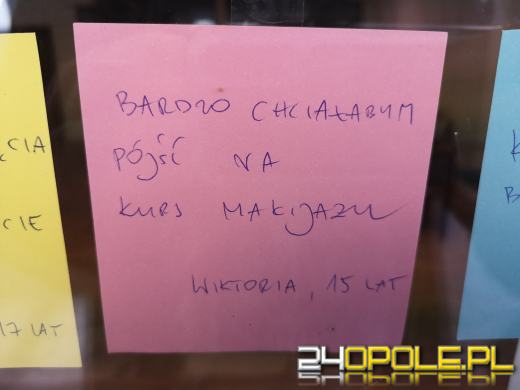 BARDZO CHCIAŁABYM
PÓJŚĆ NA
KURS MAKIJAŻU
WIKTORIA, 15 LAT
CIA
CIE
17 LAT
K
B
24OPOLE.PL